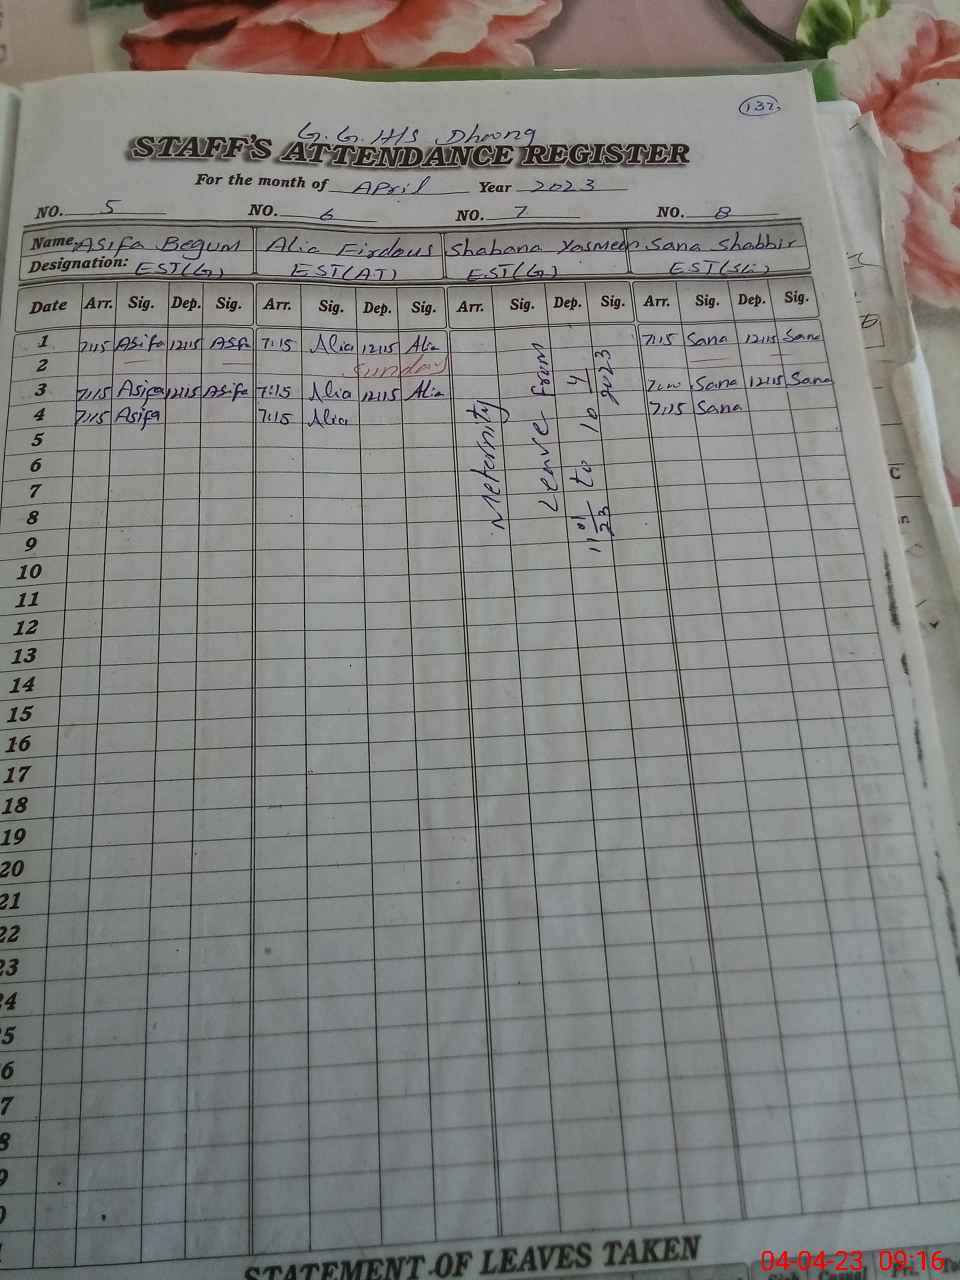 137
G. G. H/S Dhoong
STAFF'S ATTENDANCE REGISTER
For the month of April Year 2023
NO. 5 NO. 6 NO. 7 NO. 8
Name Asifa Begum Alia Firdous Shabana Yasmeen Sana Shabbir
Designation: EST(G) EST(AT) EST(G) EST(Sc)
Date Arr. Sig. Dep. Sig. Arr. Sig. Dep. Sig. Arr. Sig. Dep. Sig. Arr. Sig. Dep. Sig.
1 7:15 Asifa 12:15 Asfa 7:15 Alia 12:15 Alia 7:15 Sana 12:15 Sana
2 Sunday
3 7:15 Asifa 12:15 Asifa 7:15 Alia 12:15 Alia Sana 12:15 Sana
4 7:15 Asifa 7:15 Alia 7:15 Sana
Meternity
Leave from
11 01/23 to 10 4/2023
5
6
7
8
9
10
11
12
13
14
15
16
17
18
19
20
21
22
23
24
5
6
7
8
9
0
STATEMENT OF LEAVES TAKEN
04-04-23 09:16